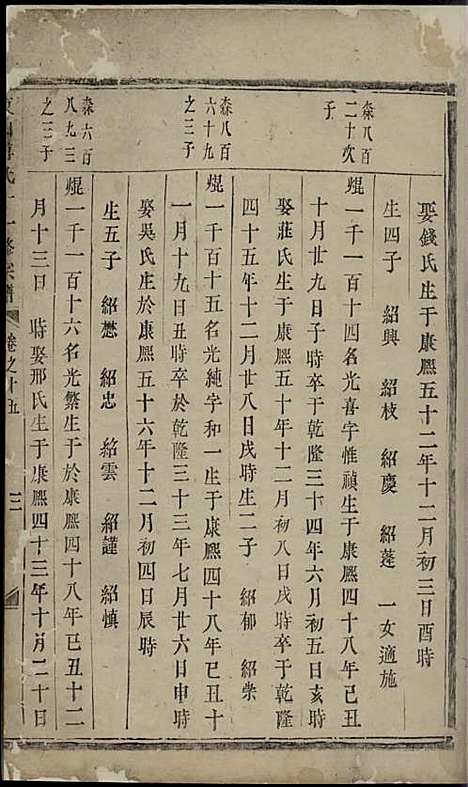 娶錢氏生于康熙五十二年十二月初三日酉時
生四子　紹興　紹枝　紹慶　紹蓬　一女適施
森八百
二十次
子
焜一千一百十四名光喜字惟禎生于康熙四十八年己丑
十月廿九日子時卒于乾隆三十四年六月初五日亥時
娶莊氏生于康熙五十年十二月初八日戌時卒于乾隆
四十五年十二月廿八日戌時生二子　紹郁　紹崇
森八百
六十九
之三子
焜一千一百十五名光純字和一生于康熙四十八年己丑十
一月十九日丑時卒於乾隆三十三年七月廿六日申時
娶吳氏生於康熙五十六年十二月初四日辰時
生五子　紹懋　紹忠　紹雲　紹謹　紹慎
森六百
八九三
之三子
焜一千一百十六名光繁生于於康熙四十八年己丑十二
月十三日　時娶邢氏生于康熙四十三年十月二十日
氏　修宗譜　卷之十五　三